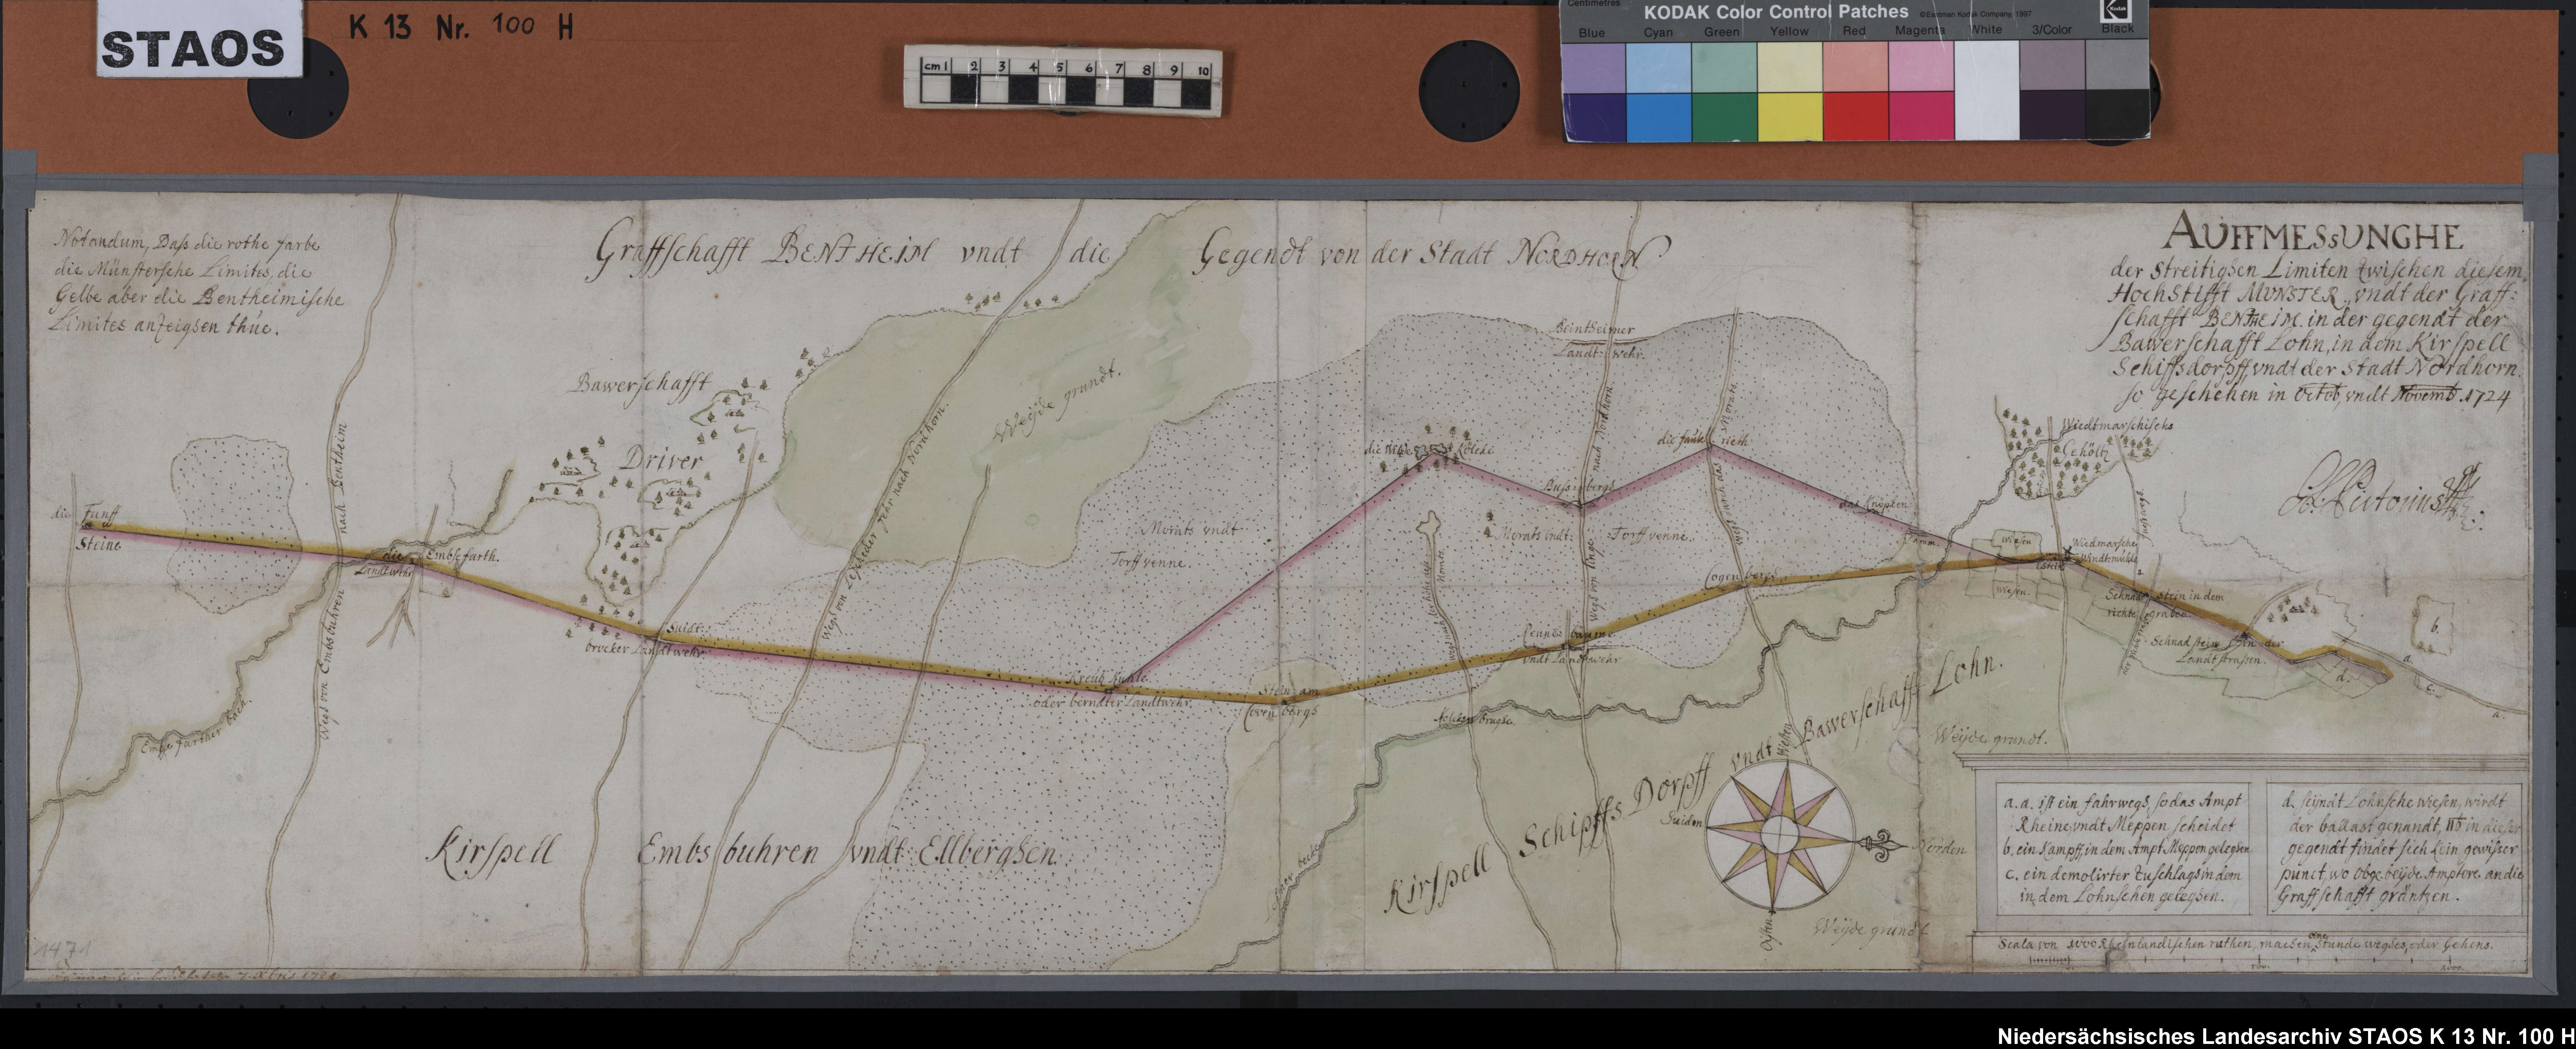 STAOS
K 13 Nr. 100 H
cm 1 2 3 4 5 6 7 8 9 10
Centimetres
KODAK Color Control Patches
©Eastman Kodak Company, 1997
Kodak
Blue Cyan Green Yellow Red Magenta White 3/Color Black
Notandum, Daß die rothe farbe
die Münstersche Limites, die
Gelbe aber die Bentheimische
Limites anzeigen thüe.
Graffschafft BENTHEIM vndt die Gegendt von der Stadt NORDHORN
AUFFMESSUNGHE
der streitigen Limiten zwischen diesem
HochStifft MUNSTER, vndt der Graff:
schafft BENTHEIM. in der gegendt der
Bawerschafft Lohn, in dem Kirspell
Schiffsdorpff, vndt der Stadt Nordhorn.
so geschehen in Octob, vndt Novemb. 1724
Beintheimer
Landt: wehr.
Bawerschafft
Driver
Weyde grundt.
Wiedtmarschische
Gehöltz
die Witte Kolcke
die faule rieth
Bussenbergs
das Knüpten
Damm.
die Funff
Steine
Wegs von Embsbuhren nach Bentheim
die Embsfarth.
Landtwehr
Embsfarther Bach.
Suidt:
brocker Landtwehr.
Wegs von nach Nordhorn.
Morats vndt
Torff venne.
Morats vndt: Torff venne.
Wegs von Linge nach Nordhorn
Wegs nach das Morats.
Kreutz Kuhle
oder berndter Landtwehr.
Stein am
Coven bergs
vndt Landtwehr
Cogen bergs
Wiesen
Wiesen.
Wiedmarsche
Windtmühle
Stein
Schnadt Stein in dem
richte graben.
Schnad stein in der
Landtstrassen.
fussweg.
a.
b.
c.
d.
a.
Weyde grundt.
Kirspell Embsbuhren vndt Ellberghen
Kirspell Schipffs Dorpff vndt Bawerschafft Lohn.
Westen
Suiden
Norden
Osten
Weyde grundt
a.a. ist ein fahrwegs, so das Ampt
Rheine vndt Meppen scheidet
b. ein Kampff, in dem Ampt Meppen gelegen
c. ein demolirter Zuschlags in dem
in dem Lohnschen gelegen.
d. seyndt Lohnsche wiesen, wirdt
der ballast genandt, NB in dieser
gegendt findet sich kein gewisser
punct, wo obge. beyde Amptere an die
Graffschafft gräntzen.
Scala von 1000 Rheinlandischen ruthen, machen eine stunde weges, oder gehens.
1471
Niedersächsisches Landesarchiv STAOS K 13 Nr. 100 H